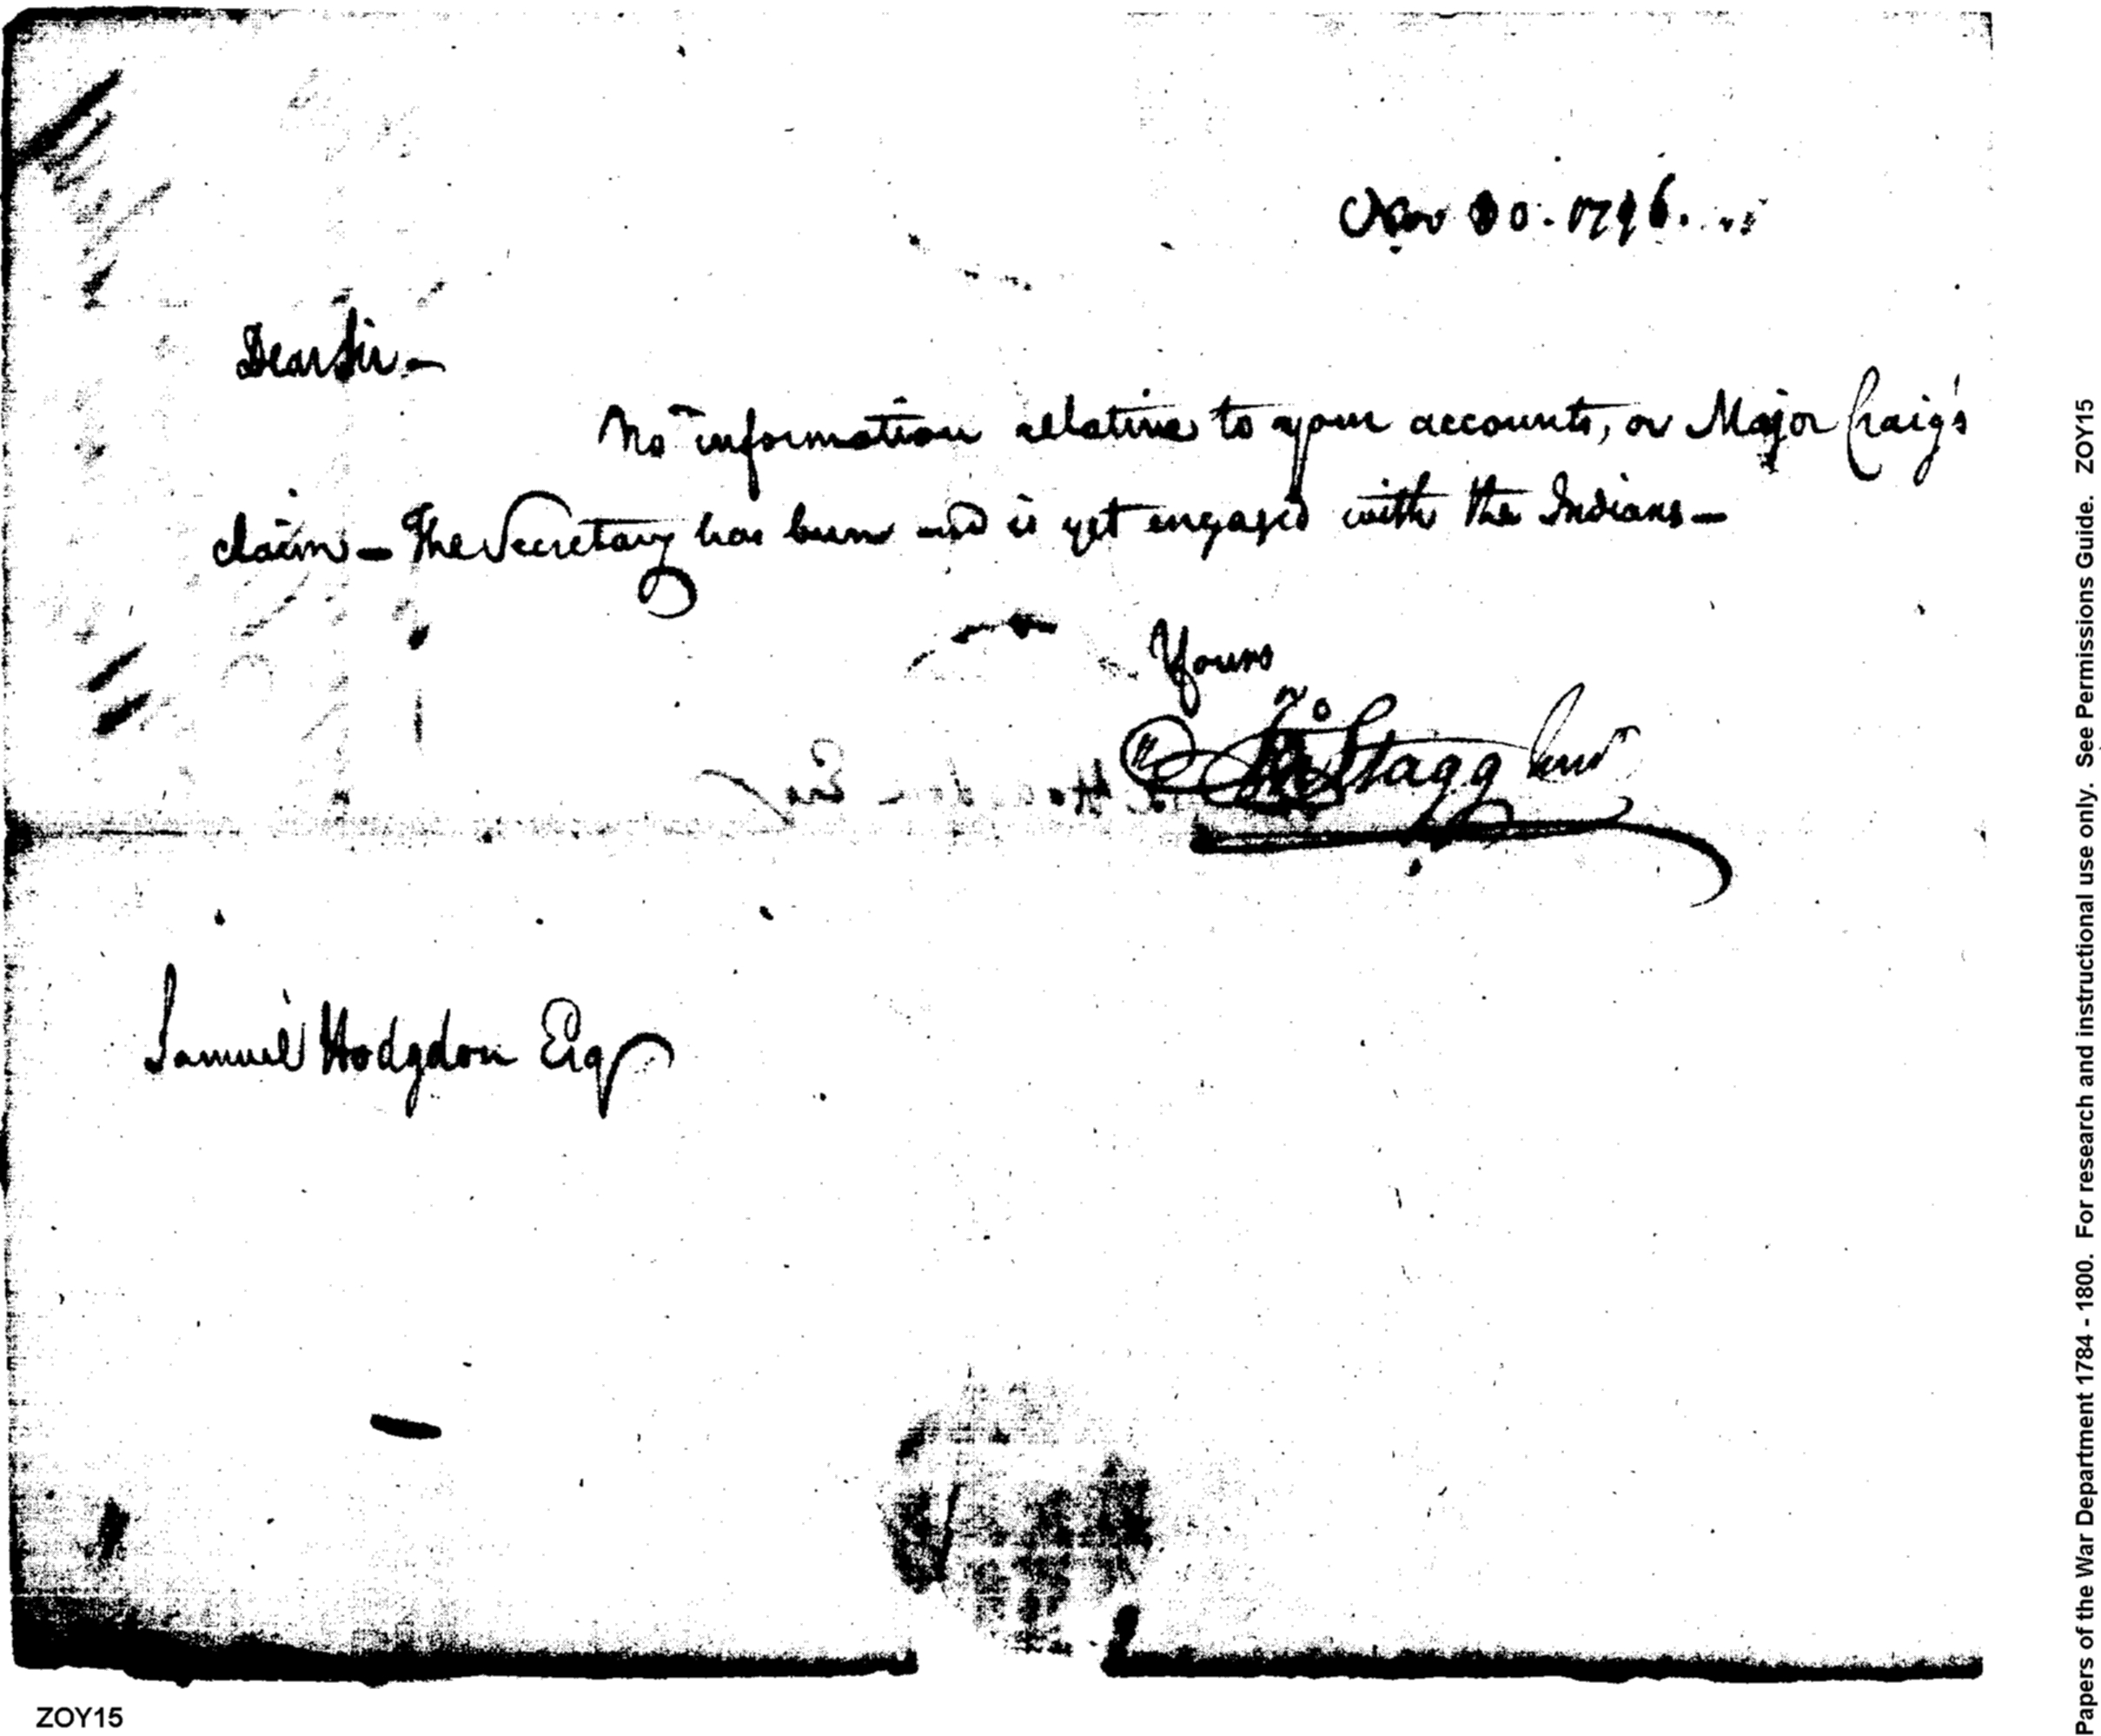 Nov 30. 1796.
Dear Sir -
No information relative to your accounts, or Major Craig's
claim - The Secretary has been and is yet engaged with the Indians -
Yours
Jno Stagg Junr
Samuel Hodgdon Esq
ZOY15
Papers of the War Department 1784 - 1800. For research and instructional use only. See Permissions Guide. ZOY15